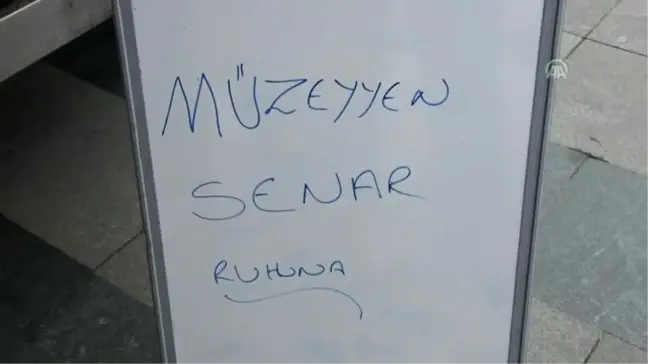 MÜZEYYEN
SENAR
RUHUNA